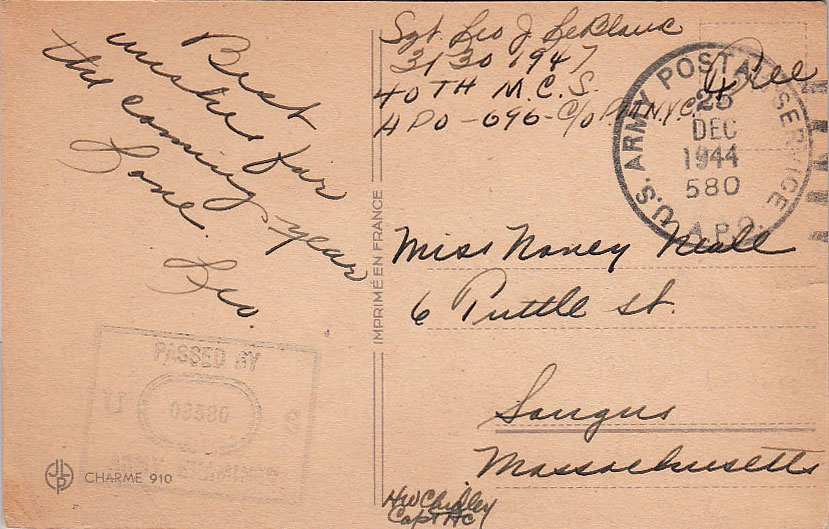 Best
wishes for
the coming year
Love.
Leo.
Sgt. Leo J LeBlanc
31301947
40TH M.C.S.
APO-696-C/O P.M. N.Y.C.
Free
U.S. ARMY POSTAL SERVICE
25
DEC
1944
580
A.P.O.
IMPRIMÉ EN FRANCE
Miss Nancy Neale
6 Tuttle St.
Saugus
Massachusetts
PASSED BY
U S
ARMY EXAMINER
JLP
CHARME 910
HW Chidley
Capt AC